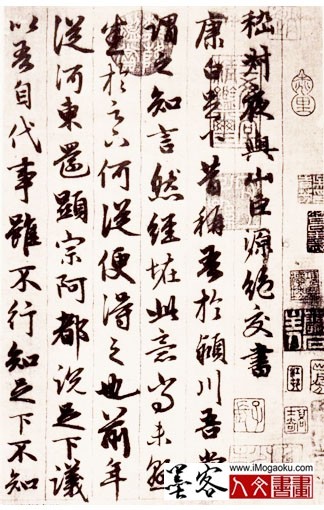 嵇叔夜與山巨源絕交書
康白足下昔稱吾於潁川吾嘗
謂之知言然經怪此意尚未
於足下何從便得之也前年
從河東還顯宗阿都說足下議
以吾自代事雖不行知足下不知
www.iMogaoku.com
人文書畫